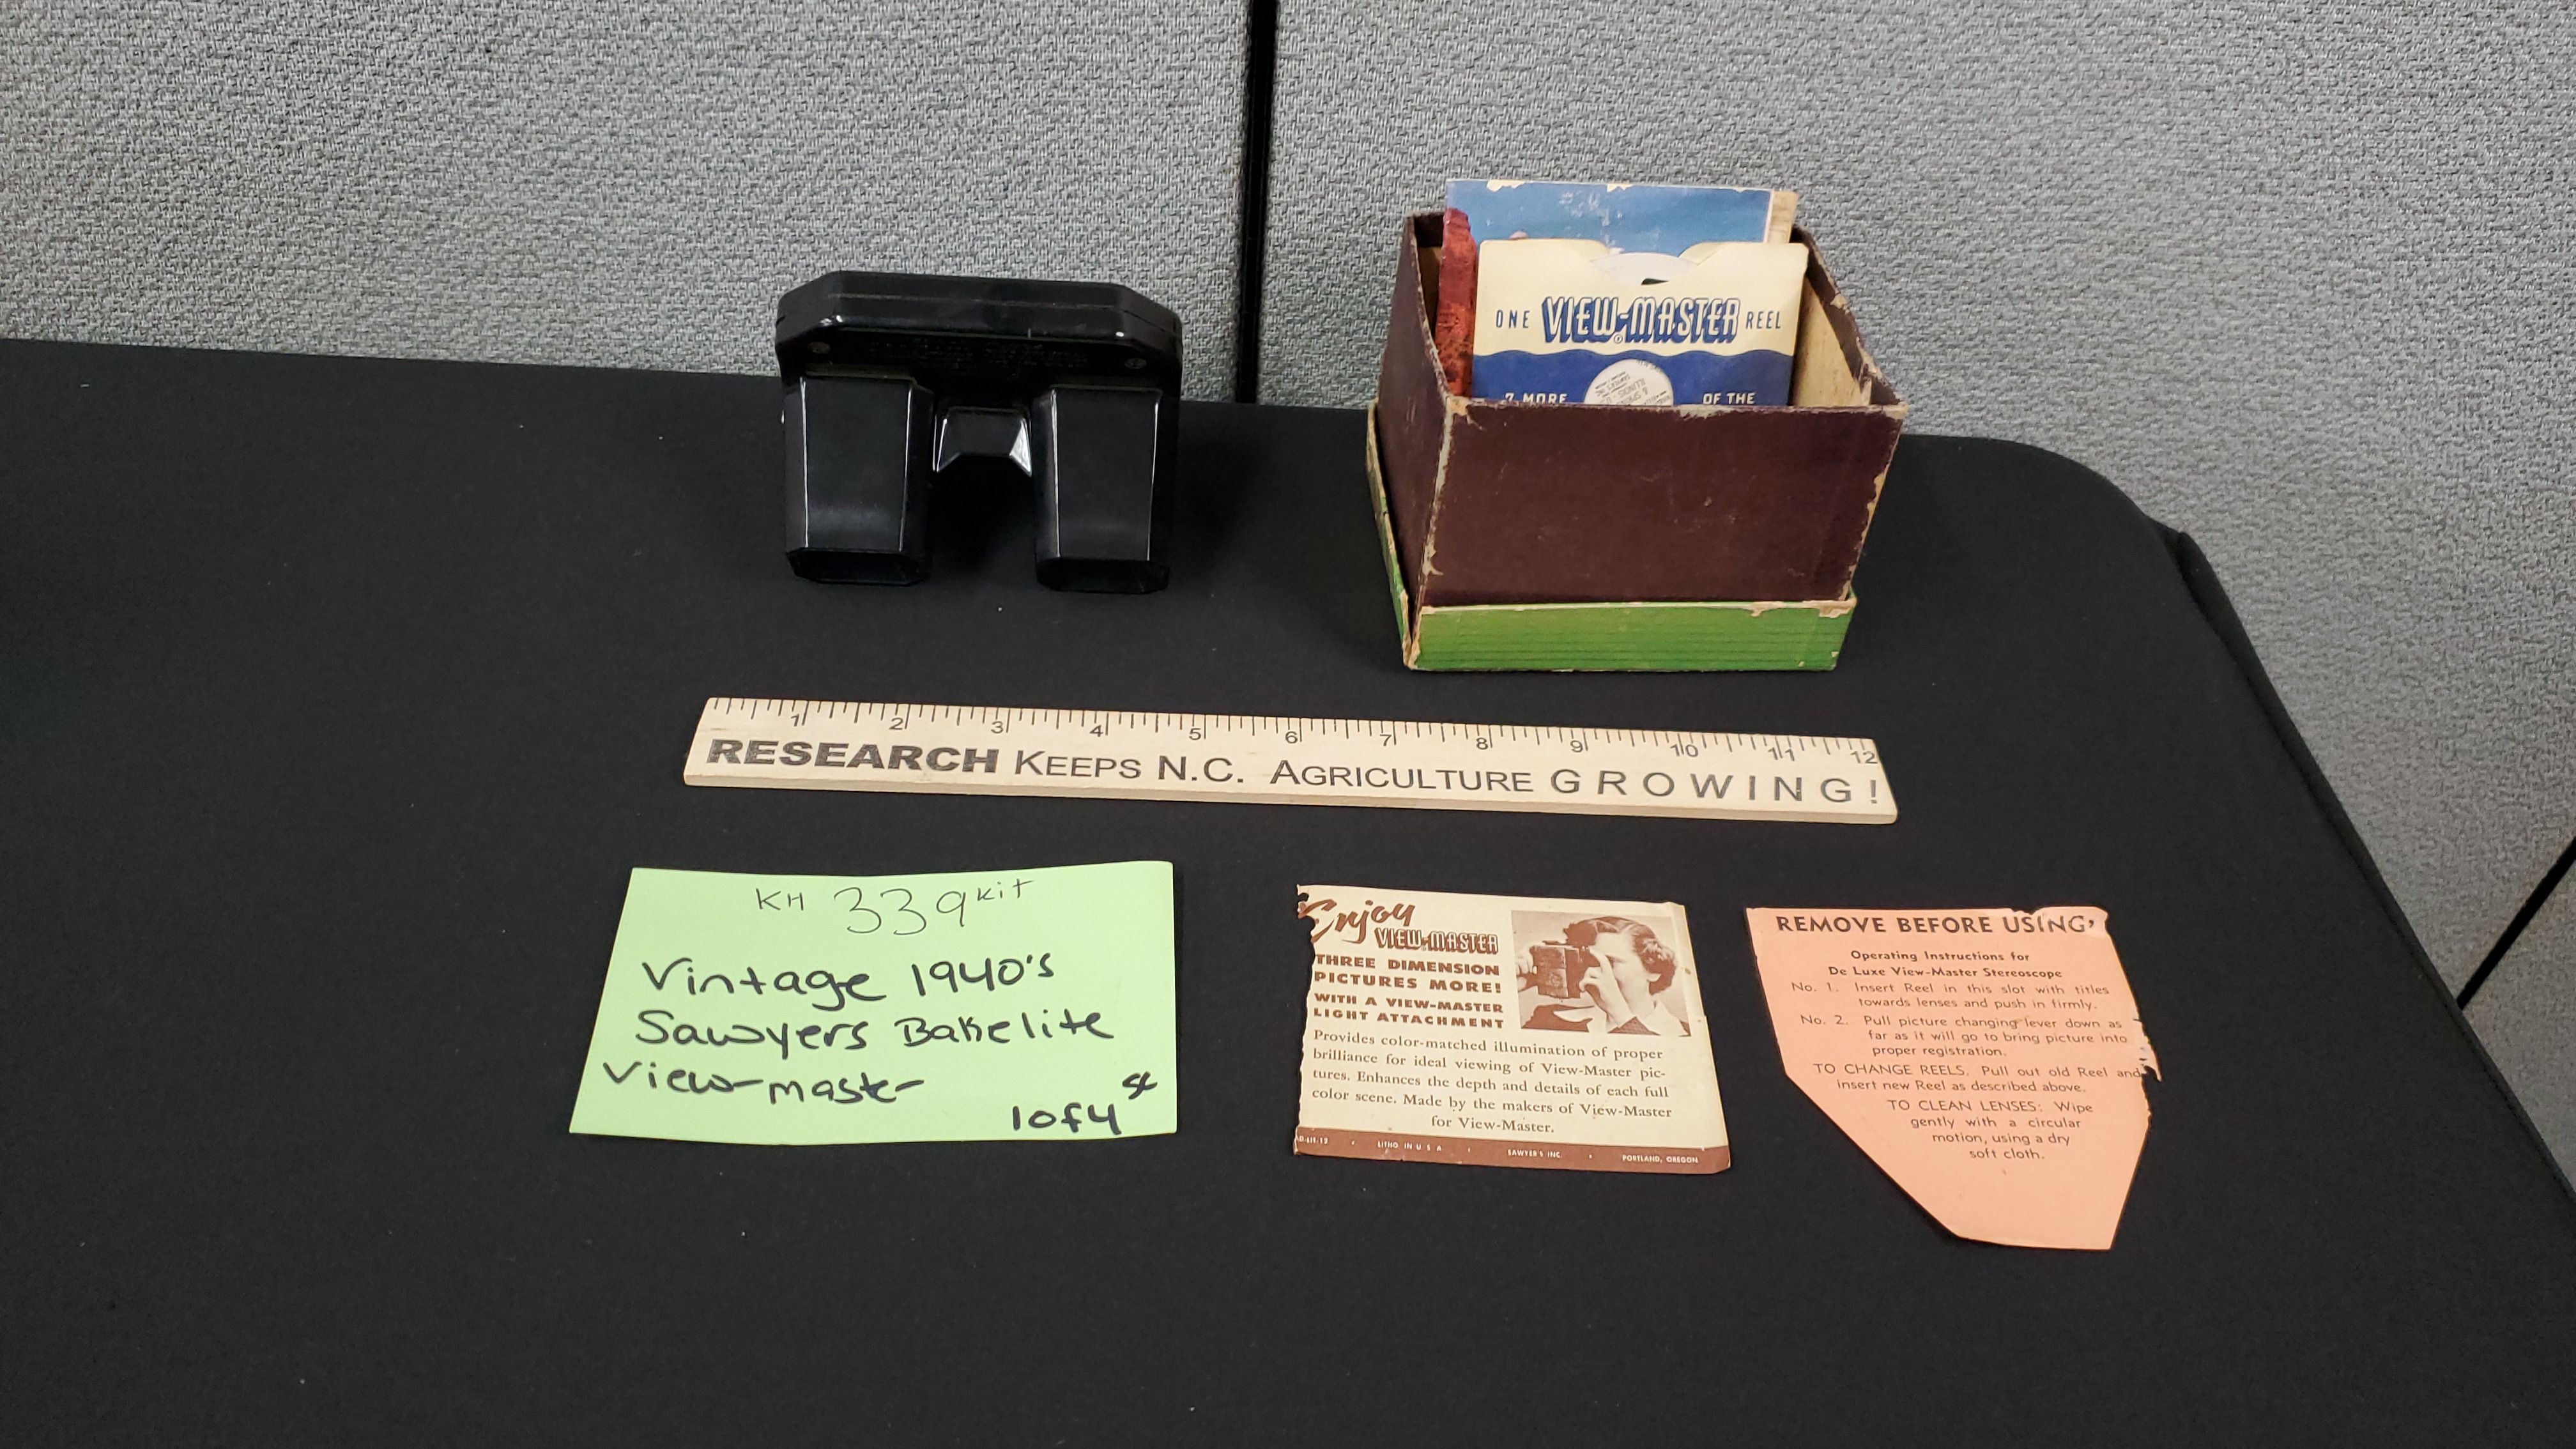 ONE VIEW-MASTER REEL
7 MORE OF THE
1 2 3 4 5 6 7 8 9 10 11 12
RESEARCH KEEPS N.C. AGRICULTURE GROWING!
KH 339 Kit
Vintage 1940's
Sawyers Bakelite
View-master
1 of 4
Enjoy
VIEW-MASTER
THREE DIMENSION
PICTURES MORE!
WITH A VIEW-MASTER
LIGHT ATTACHMENT
Provides color-matched illumination of proper
brilliance for ideal viewing of View-Master pic-
tures. Enhances the depth and details of each full
color scene. Made by the makers of View-Master
for View-Master.
LITHO. IN U.S.A. • SAWYER'S INC. • PORTLAND, OREGON
REMOVE BEFORE USING
Operating Instructions for
De Luxe View-Master Stereoscope
No. 1. Insert Reel in this slot with titles
towards lenses and push in firmly.
No. 2. Pull picture changing lever down as
far as it will go to bring picture into
proper registration.
TO CHANGE REELS. Pull out old Reel and
insert new Reel as described above.
TO CLEAN LENSES: Wipe
gently with a circular
motion, using a dry
soft cloth.